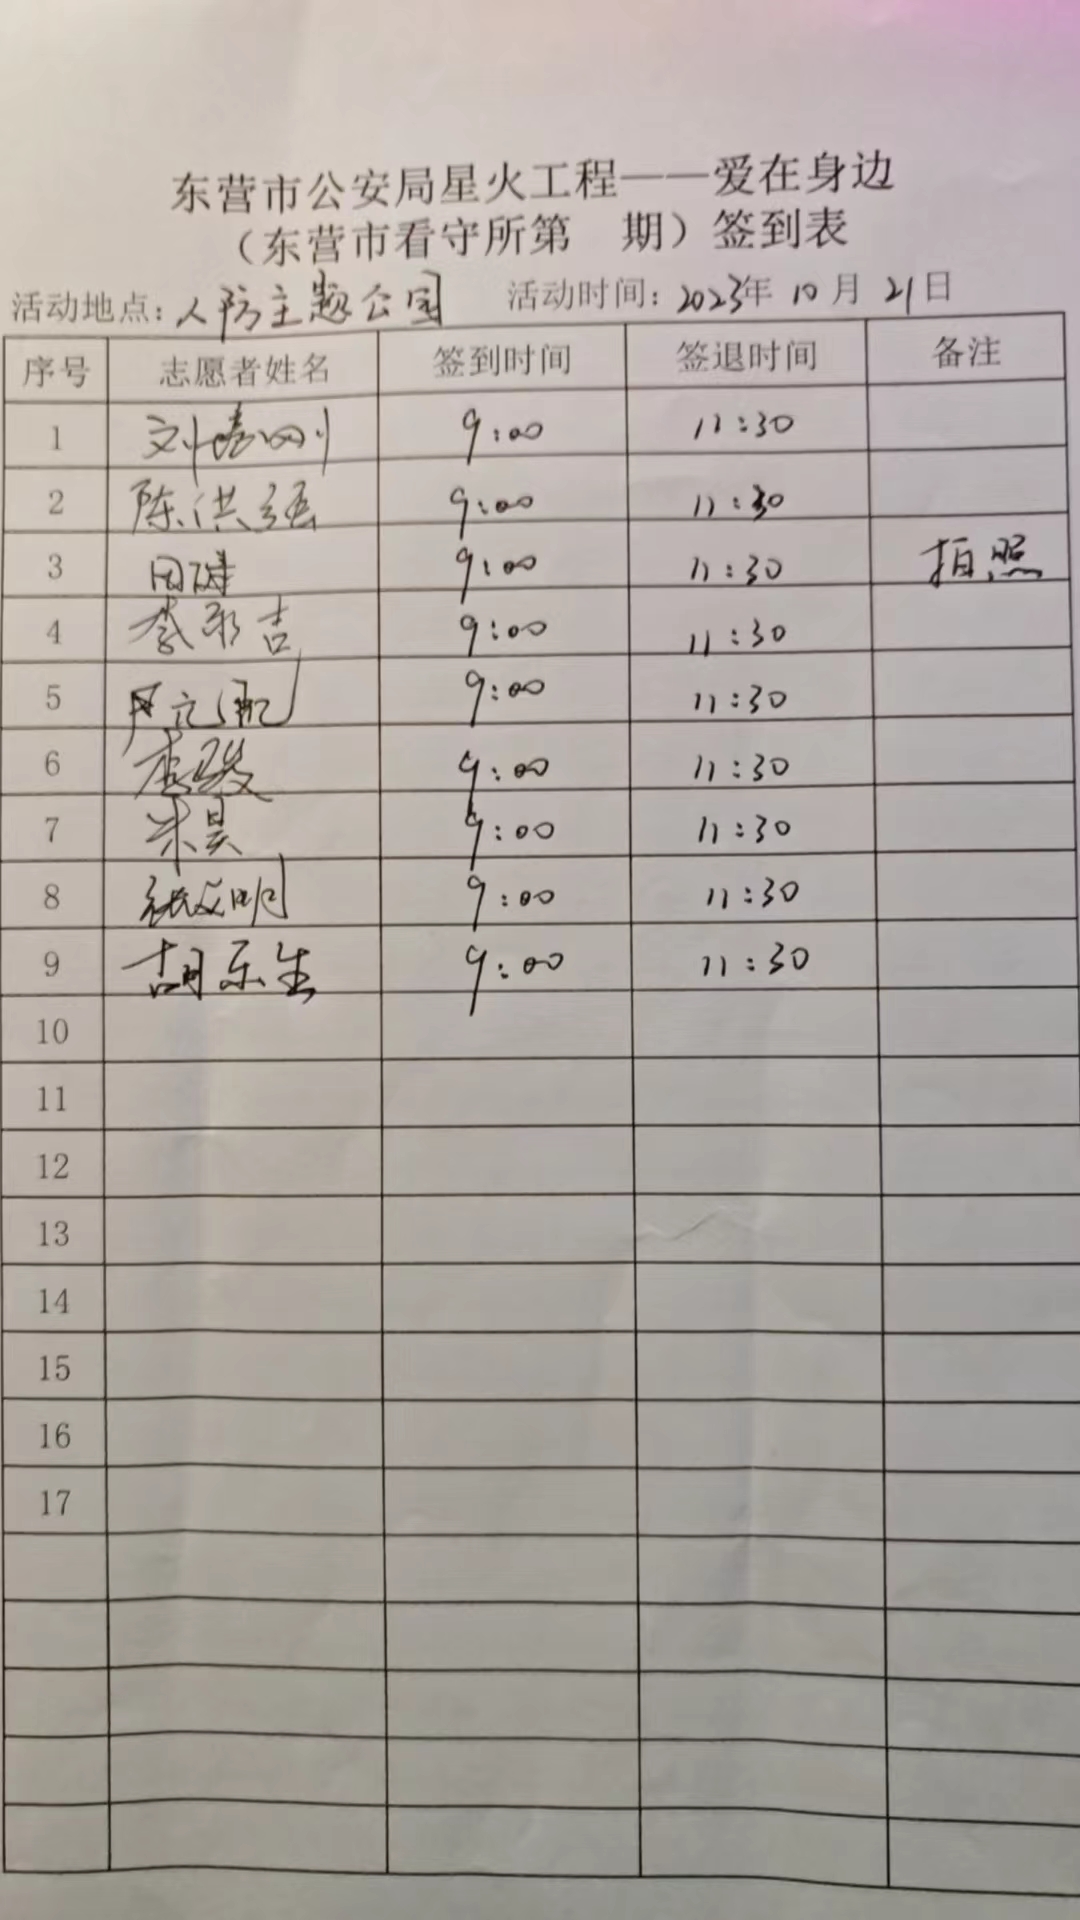 东营市公安局星火工程——爱在身边
（东营市看守所第 期）签到表
活动地点：人防主题公园 活动时间：2023年10月21日
序号 志愿者姓名 签到时间 签退时间 备注
1 刘 9:00 11:30
2 陈洪强 9:00 11:30
3 田 9:00 11:30 拍照
4 李 吉 9:00 11:30
5 9:00 11:30
6 李骏 9:00 11:30
7 米昊 9:00 11:30
8 张文明 9:00 11:30
9 胡乐生 9:00 11:30
10
11
12
13
14
15
16
17